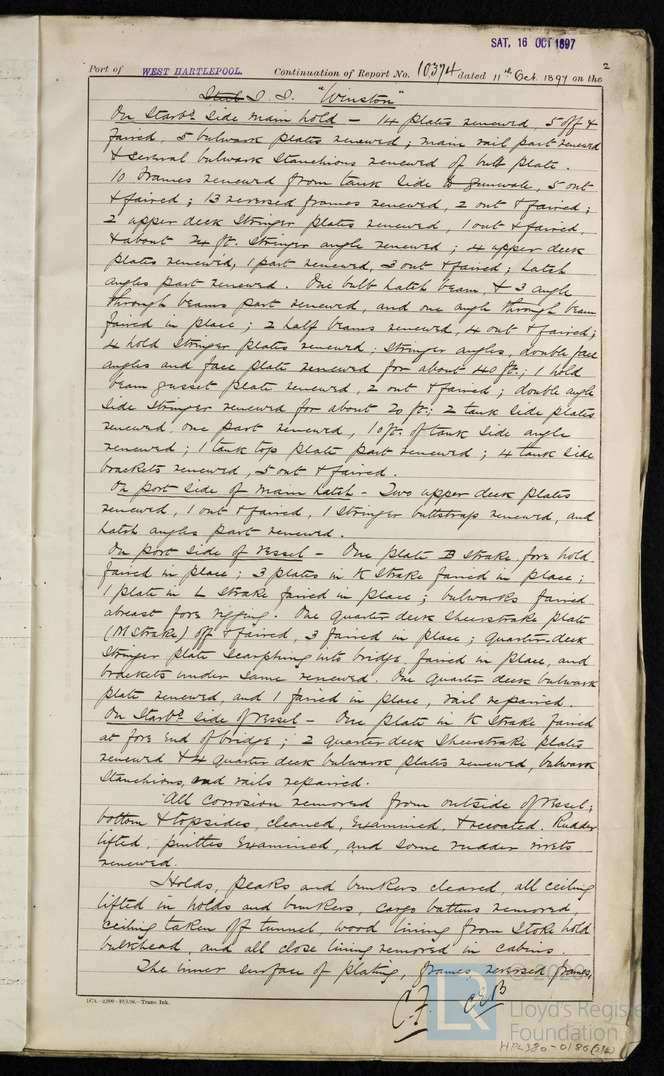 SAT. 16 OCT 1897
2
Port of WEST HARTLEPOOL. Continuation of Report No. 10374 dated 11th Oct. 1897 on the
S. S. "Winston"
On Starbd Side main hold – 14 plates renewed, 5 off &
faired, 5 bulwark plates renewed; main rail part renewed
& several bulwark stanchions renewed of bulb plate.
10 frames renewed from tank side to gunwale, 5 out
& faired; 13 reversed frames renewed, 2 out & faired;
2 upper deck Stringer plates renewed, 1 out & faired
& about 24 ft. Stringer angle renewed; 4 upper deck
plates renewed, 1 part renewed, 3 out & faired; hatch
angles part renewed. One bulb hatch beam, & 3 angle
through beams part renewed, and one angle through beam
faired in place; 2 half beams renewed, 4 out & faired;
4 hold Stringer plates renewed; Stringer angles, double face
angles and face plate renewed for about 40 ft.; 1 hold
beam gusset plate renewed, 2 out & faired; double angle
Side Stringer renewed for about 20 ft; 2 tank Side plates
renewed, one part renewed, 10 ft. of tank Side angle
renewed; 1 tank top plate part renewed; 4 tank Side
brackets renewed, 5 out & faired.
On port side of main hatch – Two upper deck plates
renewed, 1 out & faired, 1 Stringer buttstrap renewed, and
hatch angles part renewed.
On port Side of Vessel – One plate B Strake fore hold
faired in place; 3 plates in K Strake faired in place;
1 plate in L Strake faired in place; bulwarks faired
abreast fore rigging. One quarter deck Sheerstrake plate
(M Strake) off & faired, 3 faired in place; quarter-deck
Stringer plate Scarphing into bridge, faired in place, and
brackets under same renewed. One quarter deck bulwark
plate renewed, and 1 faired in place, rail repaired.
On Starbd Side of Vessel – One plate in K Strake faired
at fore end of bridge; 2 quarter deck Sheerstrake plates
renewed & 4 quarter deck bulwark plates renewed, bulwark
Stanchions, and rails repaired.
All corrosion removed from outside of Vessel;
bottom & topsides, cleaned, Examined, & recoated. Rudder
lifted, pintles Examined, and some rudder rivets
renewed.
Holds, peaks and bunkers cleared, all ceiling
lifted in holds and bunkers, cargo battens removed,
ceiling taken off tunnel, wood lining from Stoke hold
bulkhead, and all close lining removed in cabins.
The inner surface of plating, frames, reversed frames,
1874. 2,000–10/1/96.–Trans. Ink.
© 2020
LR Lloyd's Register
Foundation
HPL380-0186(2/4)